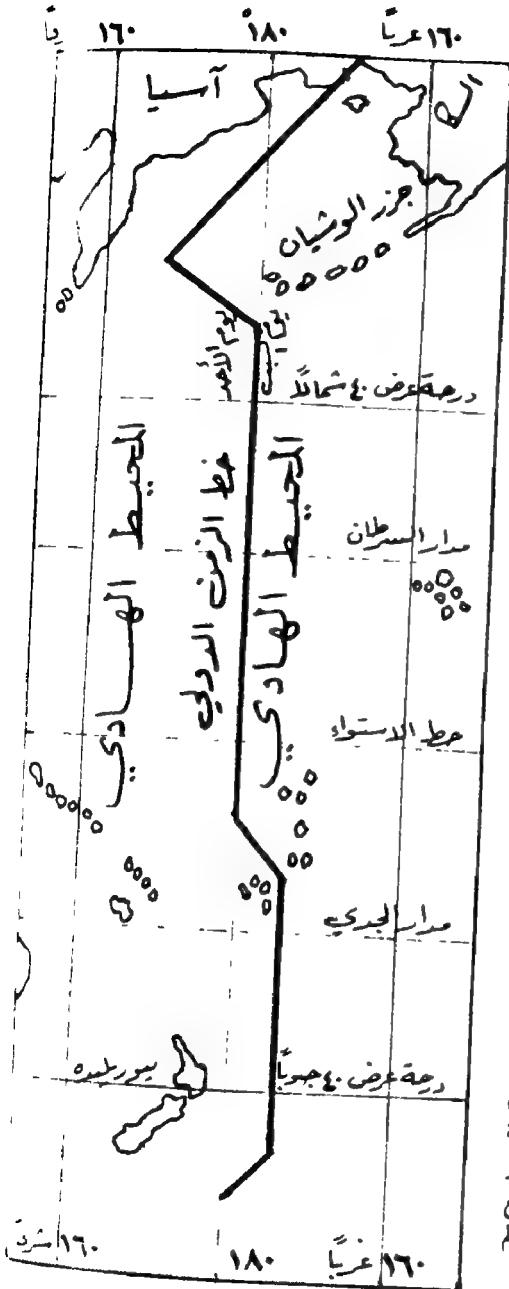 ١٦٠ غربًا
١٨٠°
١٦٠
آسيا
جزر الوشيان
يوم الأحد
درجة عرض ٤٠ شمالًا
المحيط الهادي
خط الزمن الدولي
المحيط الهادي
مدار السرطان
خط الاستواء
مدار الجدي
درجة عرض ٤٠ جنوبًا
١٦٠ غربًا
١٨٠
١٦٠ شرقً